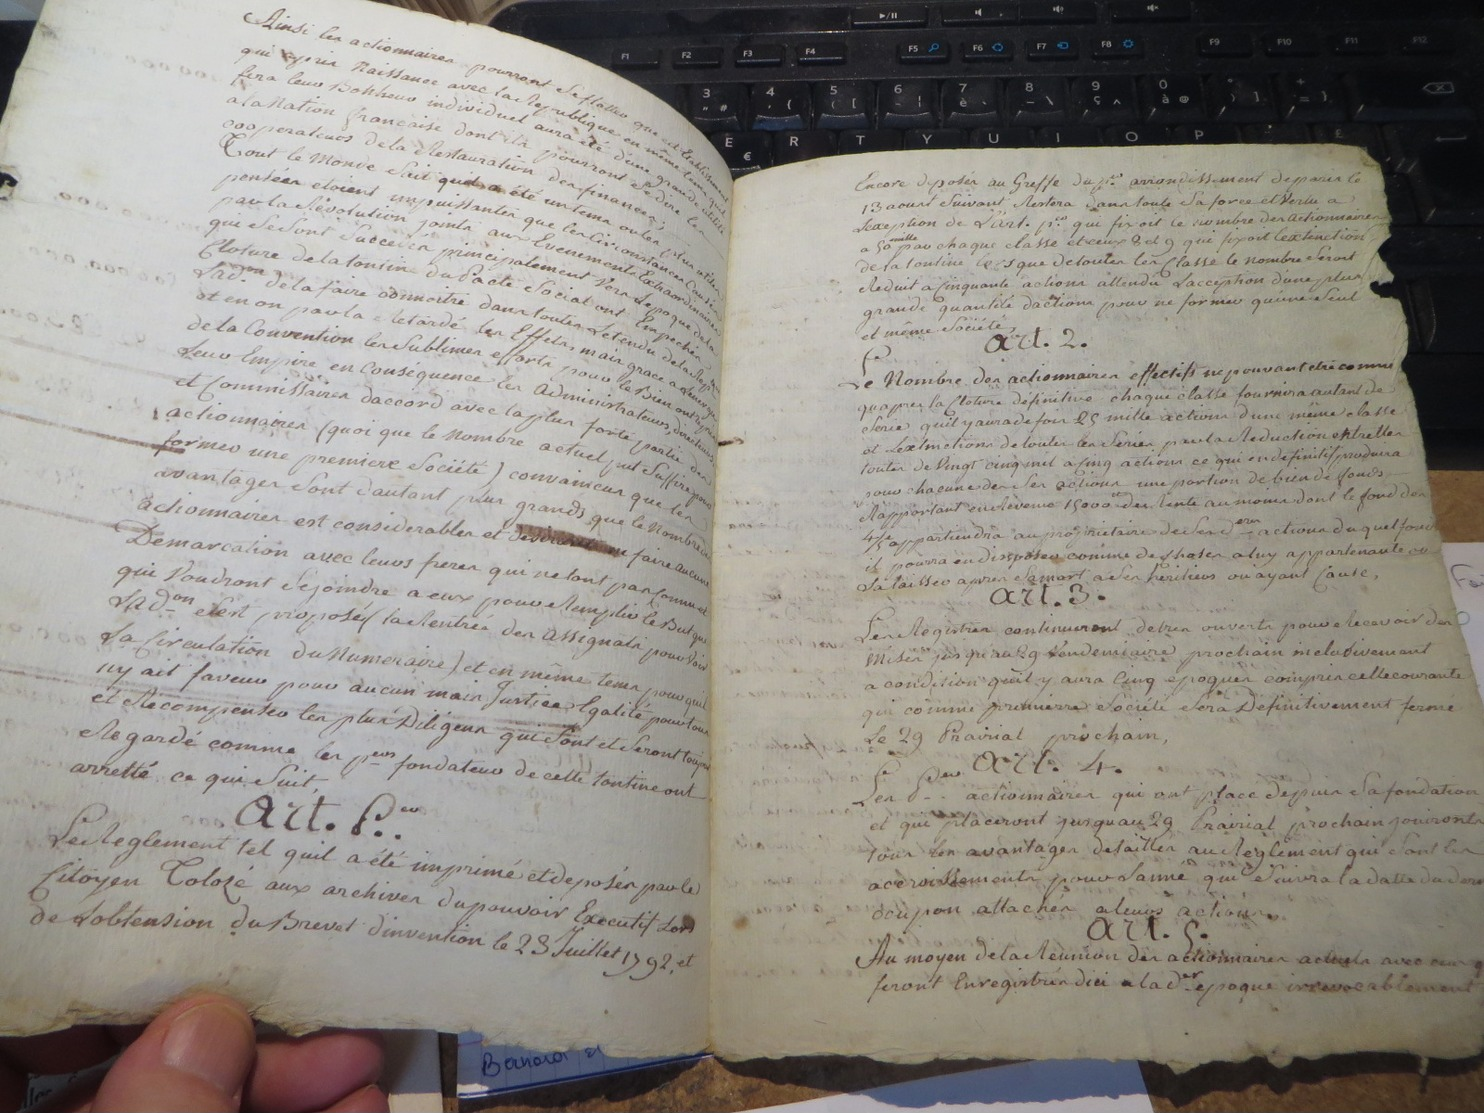 Ainsi les actionnaires pourront se flatter que cet Etablissement
qui a pris Naissance avec la Republique en même tems quil
fera leur Bonheur individuel aura été d'une grande utilité
a la Nation francaise dont ils pourront se dire les
cooperateurs de la Restauration des finances.
Tout le Monde sait quil a été un tems ou les plus utiles
pensées etoient impuissantes que les Circonstances Causées
par la Révolution joints aux Evenements Extraordinaires
qui se sont succedés principalement lors de l'epoque de la
Cloture de la tontine du Pacte Social ont Empeché
Lad.on de la faire connoitre dans toutes Letendu de la Repque
et en on par la Retardé les Effets, mais grace a
de la Convention les Sublimes efforts pour le Bien ont repris
Leur Empire en Consequence les Administrateurs, directeurs
et Commissaires daccord avec la plus forte partie des
actionnaires (quoi que le Nombre actuel put Suffire pour
former une premiere Société) convaincus que les
avantages sont d'autant plus grands que le Nombre des
actionnaires est considerables et desirant en faire aucune
Demarcation avec leurs freres qui ne sont pas Connu et
qui Voudront Se joindre a eux pour Remplir le But que
Lad.on s'est proposés (la Rentrée des assignats pour Voir
La Circulation du Numeraire) et en même tems pour quil
ny ait faveur pour aucun mais Justice Egalité pour tous
et Recompenser les plus Diligens qui Sont et Seront toujours
Regardé comme les p.ers fondateur de cette tontine ont
arretté ce qui Suit,
art. P.er
Le Reglement tel quil a été imprimé et deposés par le
Citoyen Tolozé aux archives du pouvoir Executif Lors
de Lobtension du Brevet d'invention le 23 Juillet 1792, et
Encore deposés au Greffe du p.er arrondissement de paris le
13 aoust Suivant Restera dans toute Sa force et Vertu a
Lexception de L'art. p.er qui fixoit le nombre des actionnaires
a 50 mille par chaque classe et ceux 8 et 9 qui fixoit lextinction
de la tontine lorsque de toutes les Classe le nombre seront
Reduit a Cinquante actions attendu Lacception d'une plus
grande quantité dactions pour ne former qu'une Seul
et même Société,
art. 2.
Le Nombre des actionnaires effectifs ne pouvant etre connu
quapres la Cloture définitive chaque classe fournira autant de
Série quil y aura de fois 25 mille actions d'une même classe
et Lextinctions de toutes les Series par la Reduction entre elles
toutes de Vingt cinq mil a Cinq actions ce qui en definitif produira
pour chacune des Ses actions une portion de bien de fonds
Rapportant en Revenu 15000 de Rente au moins dont le fond des
4/5 appartiendra au proprietaire de Ses D.eres actions duquel fond
il pourra en disposer comme de choses a luy appartenante ou
La laisser apres Sa mort a Ses heritiers ou ayant Cause,
art. 3.
Les Registres continueront detres ouverts pour Recevoir des
Mises jusqu'au 29 Vendemiaire prochain inclusivement
a condition quil y aura Cinq epoques compris celle courante
qui comme premierre Société Sera Definitivement fermé
Le 29 Prairial prochain,
art. 4.
Les P.ers actionnaires qui ont placé depuis Sa fondation
et qui placeront jusquau 29 Prairial prochain jouiront de
tous les avantages detailles au Règlement qui Sont les
accroissements pour Lanné qui Suivra la datte du dernier
coupon attachés a leurs actions.
art. 5.
Au moyen de la Réunion des actionnaires actuels avec ceux q
feront Enregistrés dici a la d.er epoque irrevocablement
Bernard et
F1 F2 F3 F4 F5 F6 F7 F8 F9 F10 F11 F12
E R T Y U I O P